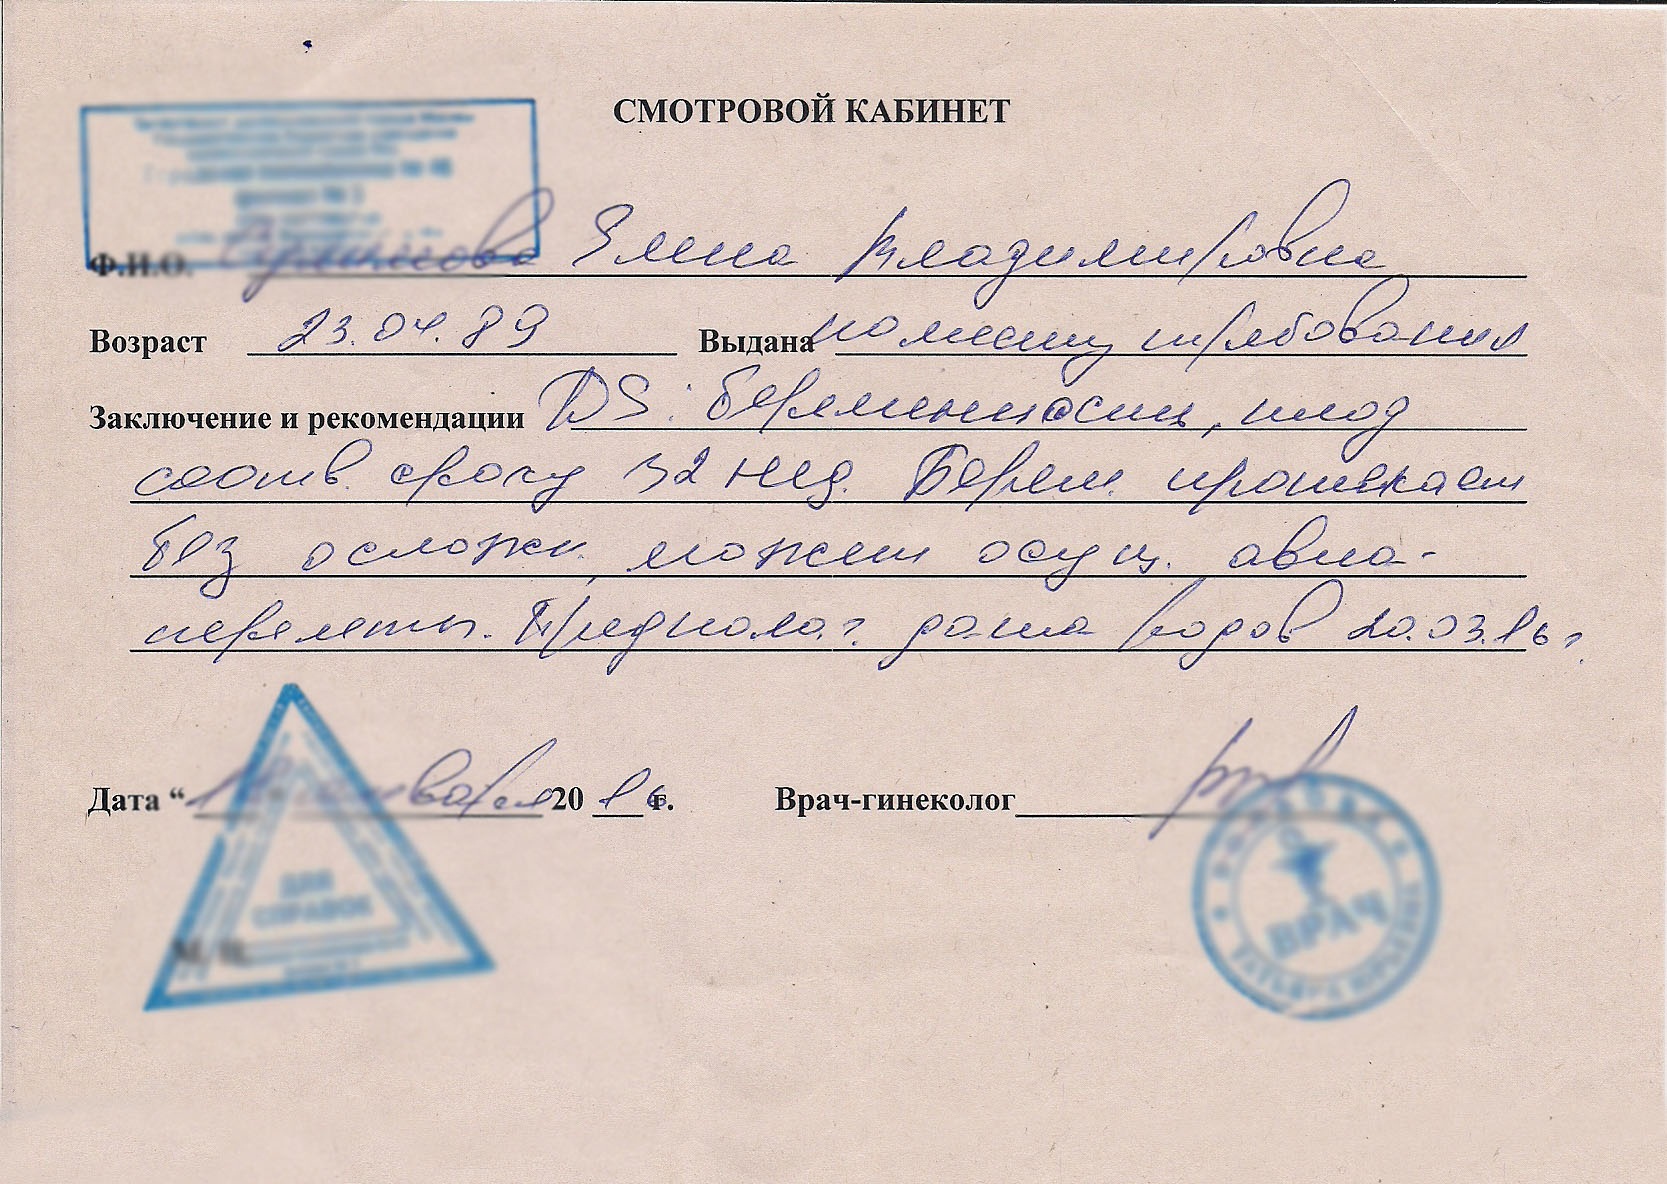 СМОТРОВОЙ КАБИНЕТ
Ф.И.О. Елена Владимировна
Возраст 23.04.89 Выдана по месту требования
Заключение и рекомендации DS: беременность, плод
соотв. сроку 32 нед. Берем. протекает
без осложн., может осущ. авиа-
перелеты. Предполаг. дата родов 20.03.16 г.
Дата “ января 20 16 г.
Врач-гинеколог
ДЛЯ
СПРАВОК
М.П.
ВРАЧ